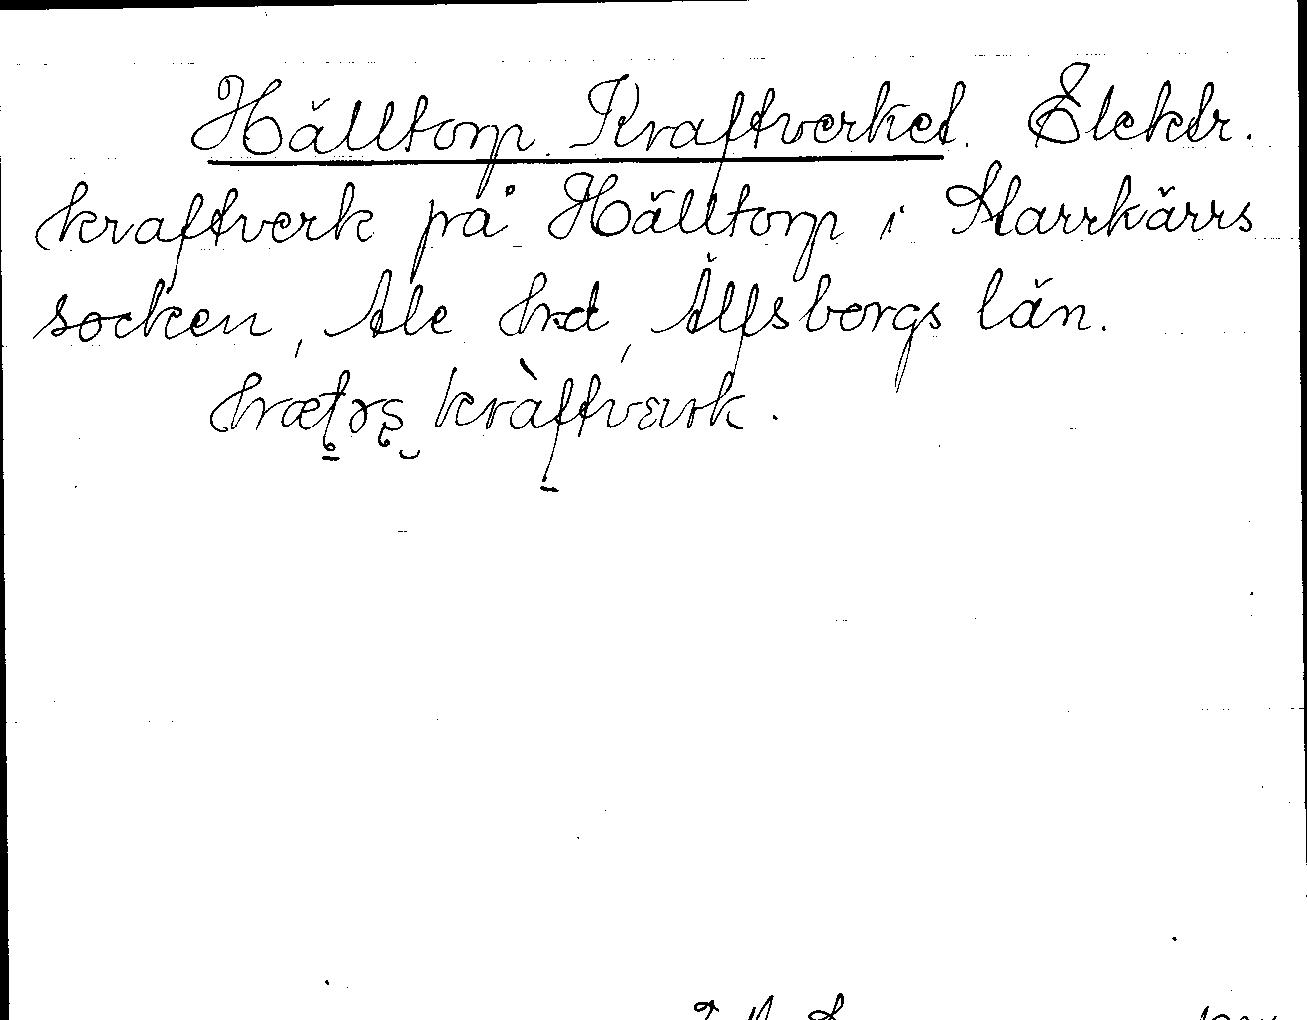 Hälltorp Kraftverket. Elektr.
kraftverk på Hälltorp i Starrkärrs
socken, Ale hrd, Älfsborgs län.
kraftverk.